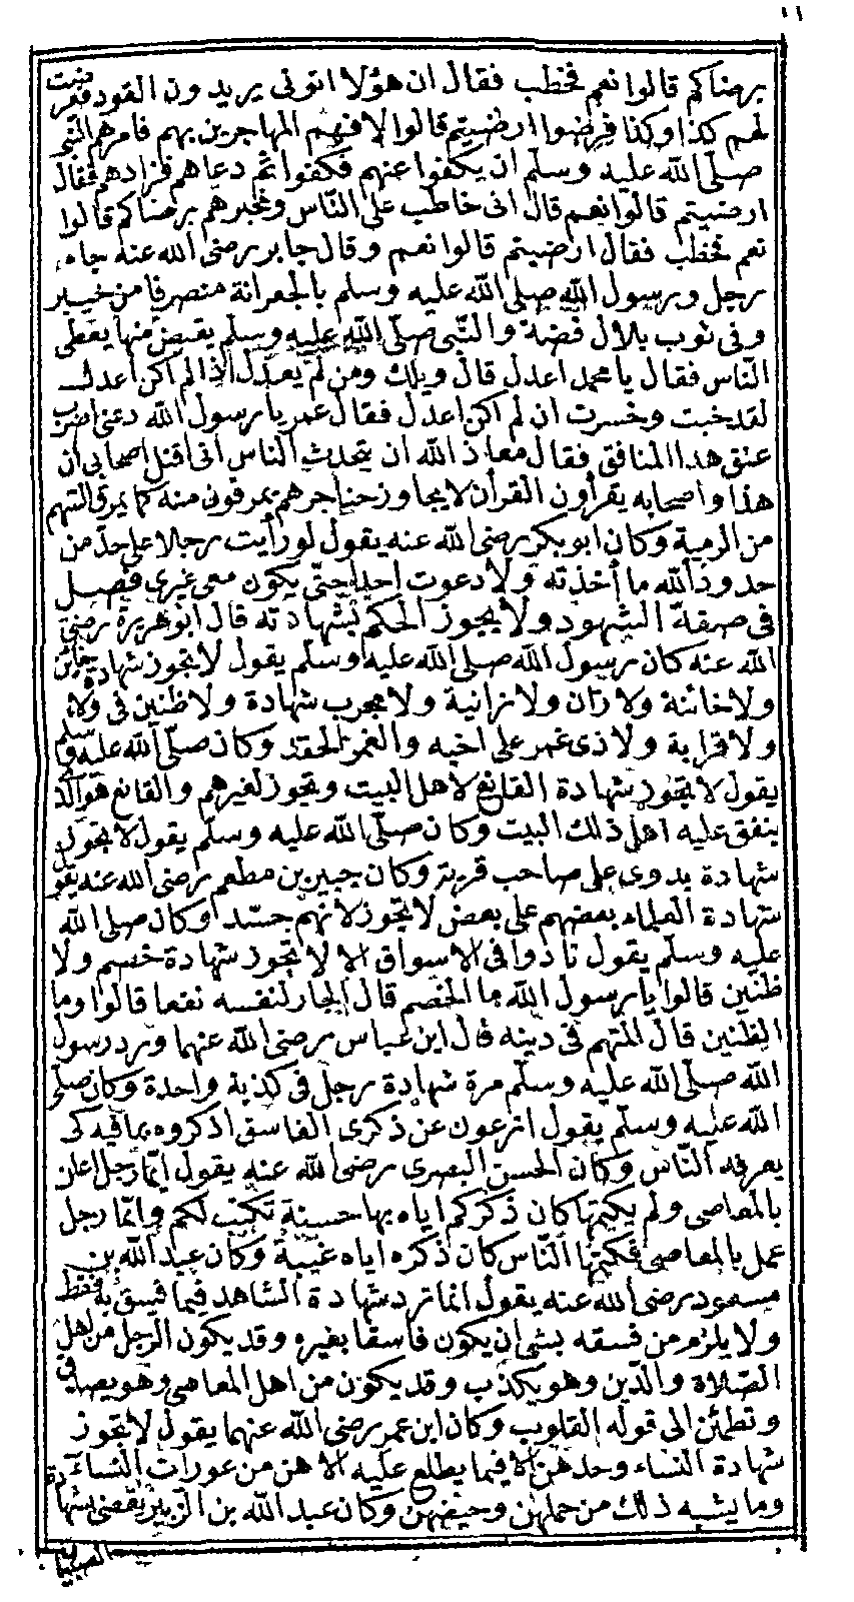 ١١
برضاكم قالوا نعم فخطب فقال ان هؤلا اتونى يريدون القود فعرضت
لهم كذا وكذا فرضوا ارضيتم قالوا لا فنهم المهاجرين بهم فامرهم النبي
صلى الله عليه وسلم ان يكفوا عنهم فكفوا ثم دعاهم فزادهم فقال
ارضيتم قالوا نعم قال انى خاطب على الناس ومخبرهم برضاكم قالوا
نعم فخطب فقال ارضيتم قالوا نعم وقال جابر رضى الله عنه جاء
رجل ورسول الله صلى الله عليه وسلم بالجعرانة منصرفا من خيبر
وفى ثوب بلال فضة والنبى صلى الله عليه وسلم يقبض منها يعطى
الناس فقال يا محمد اعدل قال ويلك ومن لم يعدل اذا لم اكن اعدل
لقد خبت وخسرت ان لم اكن اعدل فقال عمر يا رسول الله دعنى اضرب
عنق هذا المنافق فقال معاذ الله ان يتحدث الناس انى اقتل اصحابى ان
هذا واصحابه يقرأون القرأن لا يجاوز حناجرهم يمرقون منه كما يمرق السهم
من الرمية وكان ابو بكر رضى الله عنه يقول لو رأيت رجلا على حد من
حدود الله ما أخذته ولا دعوت احدا حتى يكون معى غيرى فصل
فى صفة الشهود ولا يجوز الحكم بشهادته قال ابو هريرة رضى
الله عنه كان رسول الله صلى الله عليه وسلم يقول لا يجوز شهادة خاين
ولا خائنة ولا زان ولا زانية ولا مجرب شهادة ولا ظنين فى ولاء
ولا قرابة ولا ذى غمر على اخيه والغمر الحقد وكان صلى الله عليه وسلم
يقول لا تجوز شهادة القانع لاهل البيت وتجوز لغيرهم والقانع هو الذ
ينفق عليه اهل ذلك البيت وكان صلى الله عليه وسلم يقول لا تجوز
شهادة بدوى على صاحب قرية وكان جبير بن مطعم رضى الله عنه يقول
شهادة العلماء بعضهم على بعض لا تجوز لانهم حسد وكان صلى الله
عليه وسلم يقول نادوا فى الاسواق الا لا تجوز شهادة خصم ولا
ظنين قالوا يا رسول الله ما الخصم قال الجار لنفسه نفعا قالوا وما
الظنين قال المتهم فى دينه قال ابن عباس رضى الله عنهما ورد رسول
الله صلى الله عليه وسلم مرة شهادة رجل فى كذبة واحدة وكان صلى
الله عليه وسلم يقول اترعون عن ذكرى الفاسق اذكروه بما فيه كى
يعرفه الناس وكان الحسن البصرى رضى الله عنه يقول ايما رجل اعلن
بالمعاصى ولم يكتمها كان ذكركم اياه بها حسنة تكتب لكم وايما رجل
عمل بالمعاصى فكتمها الناس كان ذكره اياه غيبة وكان عبد الله بن
مسعود رضى الله عنه يقول انما ترد شهادة الشاهد فيما فسق به فقط
ولا يلزم من فسقه بشئ ان يكون فاسقا بغيره وقد يكون الرجل من اهل
الصلاة والدين وهو يكذب وقد يكون من اهل المعاصى وهو يصدق
وتطمئن الى قوله القلوب وكان ابن عمر رضى الله عنهما يقول لا تجوز
شهادة النساء وحدهن الا فيما يطلع عليه الا هن من عورات النساء
وما يشبه ذلك من حملهن وحيضهن وكان عبد الله بن الزبير يقضى بشهادة
الصبيان